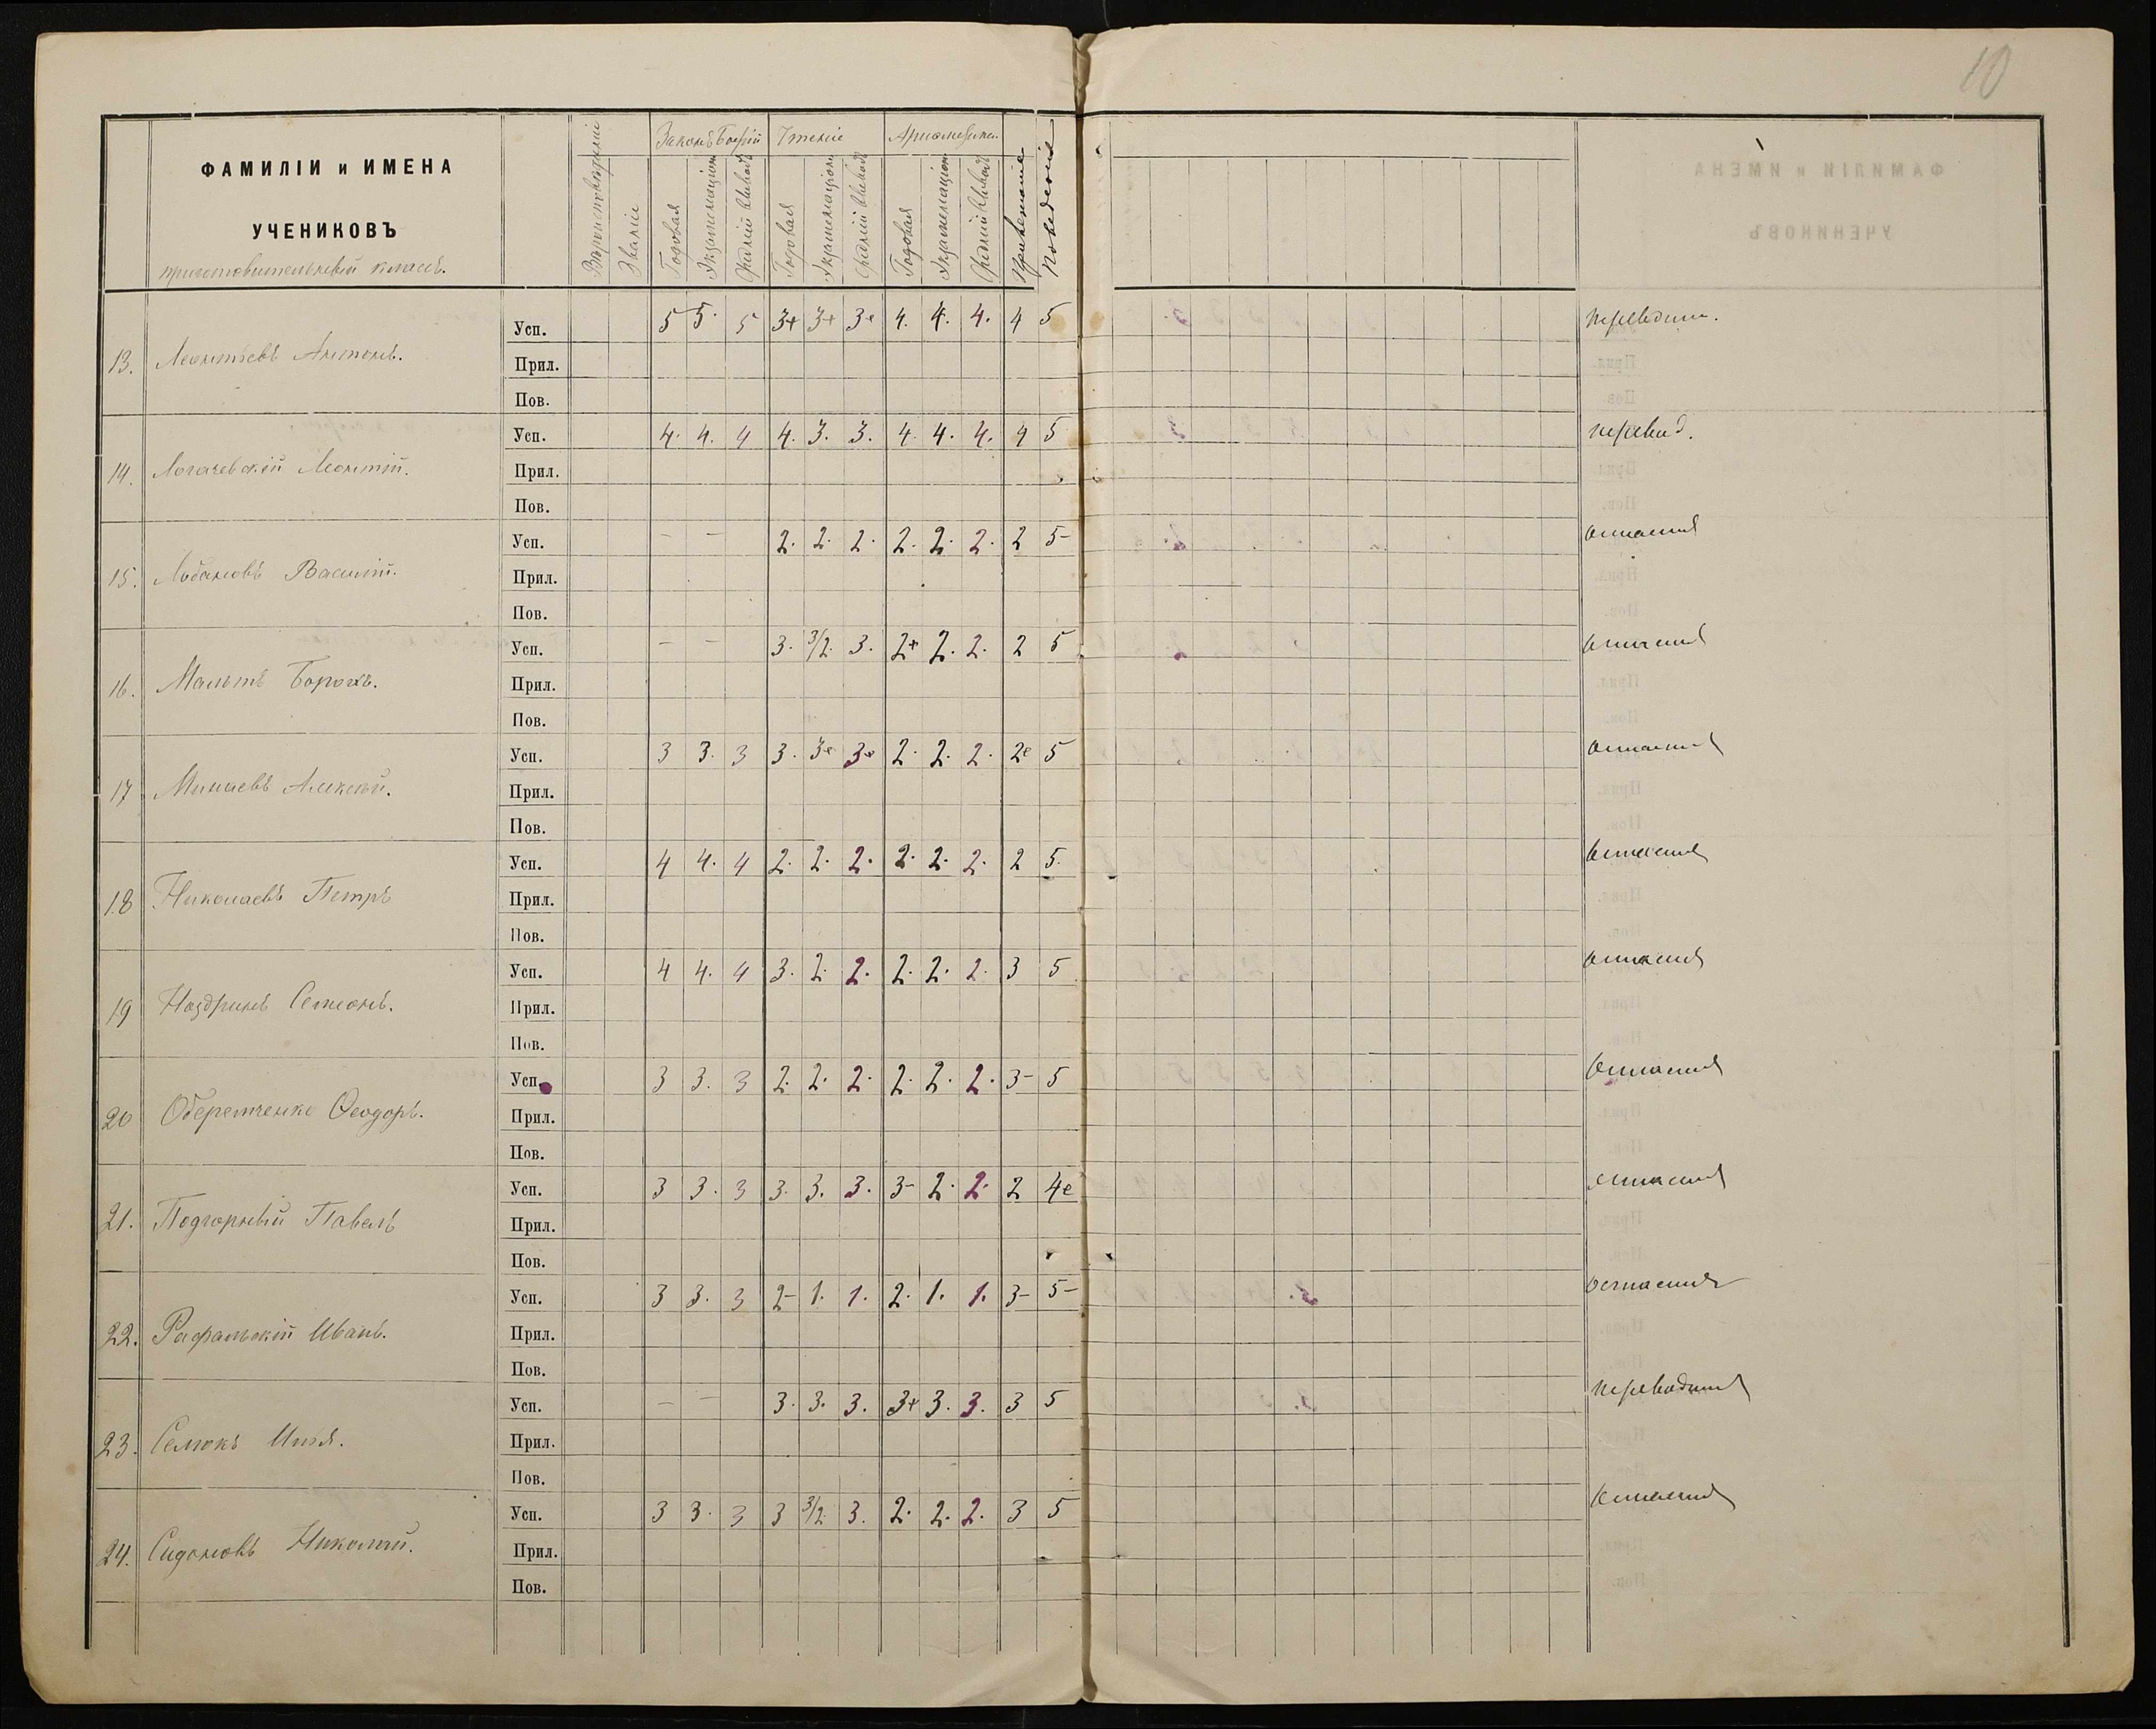 10
ФАМИЛІИ и ИМЕНА
УЧЕНИКОВЪ
приготовительный классъ.
Вѣроисповѣданіе
Званіе
Законъ Божій Чтеніе Ариѳметика
Годовая Экзаменаціон Средній выводъ Годовая Экзаменаціон Средній выводъ Годовая Экзаменаціон Средній выводъ Прилежаніе Поведеніе
13. Леонтьевъ Антонъ. Усп. 5 5. 5 3+ 3+ 3+ 4. 4. 4. 4 5 переводит.
Прил.
Пов.
14. Логачевскій Леонтій. Усп. 4. 4. 4 4. 3. 3. 4. 4. 4. 4 5 перевод.
Прил.
Пов.
15. Лобановъ Василій. Усп. – – 2. 2. 2. 2. 2. 2. 2 5– остается
Прил.
Пов.
16. Мальтъ Борохъ. Усп. – – 3. 3/2. 3. 2+ 2. 2. 2 5 остается
Прил.
Пов.
17 Минаевъ Алексѣй. Усп. 3 3. 3 3. 3+ 3+ 2. 2. 2. 2+ 5 остается
Прил.
Пов.
18 Николаевъ Петръ Усп. 4 4. 4 2. 2. 2. 2. 2. 2. 2 5. остается
Прил.
Пов.
19 Ноздринъ Семенъ. Усп. 4 4. 4 3. 2. 2. 2. 2. 2. 3 5 остается
Прил.
Пов.
20 Оберемченко Ѳеодоръ. Усп. 3 3. 3 2. 2. 2. 2. 2. 2. 3– 5 остается
Прил.
Пов.
21. Подгорный Павелъ Усп. 3 3. 3 3. 3. 3. 3– 2. 2. 2 4+ остается
Прил.
Пов.
22. Рафальскій Иванъ. Усп. 3 3. 3 2– 1. 1. 2. 1. 1. 3– 5– остается
Прил.
Пов.
23. Селюкъ Илья. Усп. – – 3. 3. 3. 3+ 3. 3. 3 5 переводится
Прил.
Пов.
24. Сидоновъ Николай. Усп. 3 3. 3 3 3/2. 3. 2. 2. 2. 3 5 остается
Прил.
Пов.